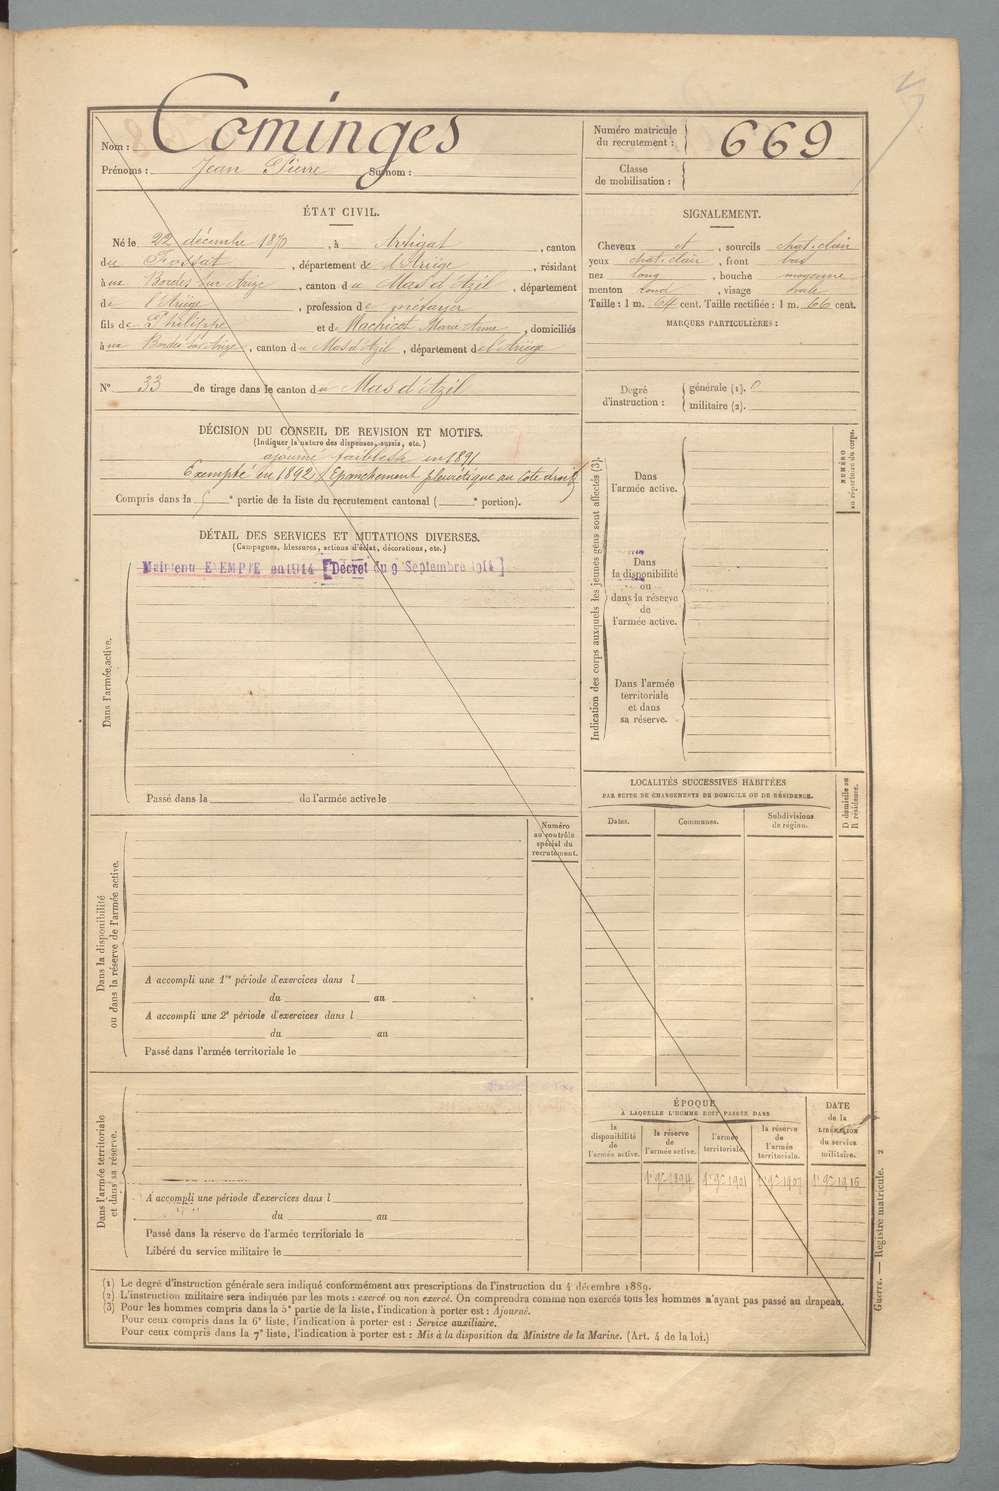 Nom : Cominges
Prénoms : Jean Pierre Surnom :
Numéro matricule du recrutement : 669
Classe de mobilisation :
ÉTAT CIVIL.
Né le 22 décembre 1870, à Artigat, canton
du Fossat, département de l'Ariège, résidant
aux Bordes sur Arize, canton du Mas d'Azil, département
de l'Ariège, profession de métayer
fils de Philippe et de Machicot Marie Anne, domiciliés
aux Bordes sur Arize, canton du Mas d'Azil, département de l'Ariège
N° 33 de tirage dans le canton du Mas d'Azil
SIGNALEMENT.
Cheveux et, sourcils chat. clair
yeux chat. clair, front bas
nez long, bouche moyenne
menton rond, visage ovale
Taille : 1 m. 64 cent. Taille rectifiée : 1 m. 66 cent.
MARQUES PARTICULIÈRES :
Degré d'instruction :
générale (1). 0
militaire (2).
DÉCISION DU CONSEIL DE REVISION ET MOTIFS.
(Indiquer la nature des dispenses, sursis, etc.)
ajourné faiblesse en 1891
Exempté en 1892 (Epanchement pleurétique au côté droit)
Compris dans la 5e partie de la liste du recrutement cantonal ( e portion).
DÉTAIL DES SERVICES ET MUTATIONS DIVERSES.
(Campagnes, blessures, actions d'éclat, décorations, etc.)
Maintenu EXEMPTÉ en 1914 [Décret du 9 Septembre 1914]
Dans l'armée active.
Passé dans la de l'armée active le
Indication des corps auxquels les jeunes gens sont affectés (3).
Dans l'armée active.
Dans la disponibilité ou dans la réserve de l'armée active.
Dans l'armée territoriale et dans sa réserve.
NUMÉRO au répertoire du corps.
LOCALITÉS SUCCESSIVES HABITÉES
PAR SUITE DE CHANGEMENTS DE DOMICILE OU DE RÉSIDENCE.
Dates. Communes. Subdivisions de région.
D domicile ou R résidence.
Numéro au contrôle spécial du recrutement.
Dans la disponibilité ou dans la réserve de l'armée active.
A accompli une 1re période d'exercices dans l
du au
A accompli une 2e période d'exercices dans l
du au
Passé dans l'armée territoriale le
Dans l'armée territoriale et dans sa réserve.
A accompli une période d'exercices dans l
du au
Passé dans la réserve de l'armée territoriale le
Libéré du service militaire le
ÉPOQUE
À LAQUELLE L'HOMME DOIT PASSER DANS
la disponibilité de l'armée active.
la réserve de l'armée active.
l'armée territoriale.
la réserve de l'armée territoriale.
DATE de la LIBÉRATION du service militaire.
1er 9bre 1894 1er 9bre 1901 1er 9bre 1907 1er 9bre 1916
(1) Le degré d'instruction générale sera indiqué conformément aux prescriptions de l'instruction du 4 décembre 1889.
(2) L'instruction militaire sera indiquée par les mots : exercé ou non exercé. On comprendra comme non exercés tous les hommes n'ayant pas passé au drapeau.
(3) Pour les hommes compris dans la 5e partie de la liste, l'indication à porter est : Ajourné.
Pour ceux compris dans la 6e liste, l'indication à porter est : Service auxiliaire.
Pour ceux compris dans la 7e liste, l'indication à porter est : Mis à la disposition du Ministre de la Marine. (Art. 4 de la loi.)
Guerre. — Registre matricule. 2